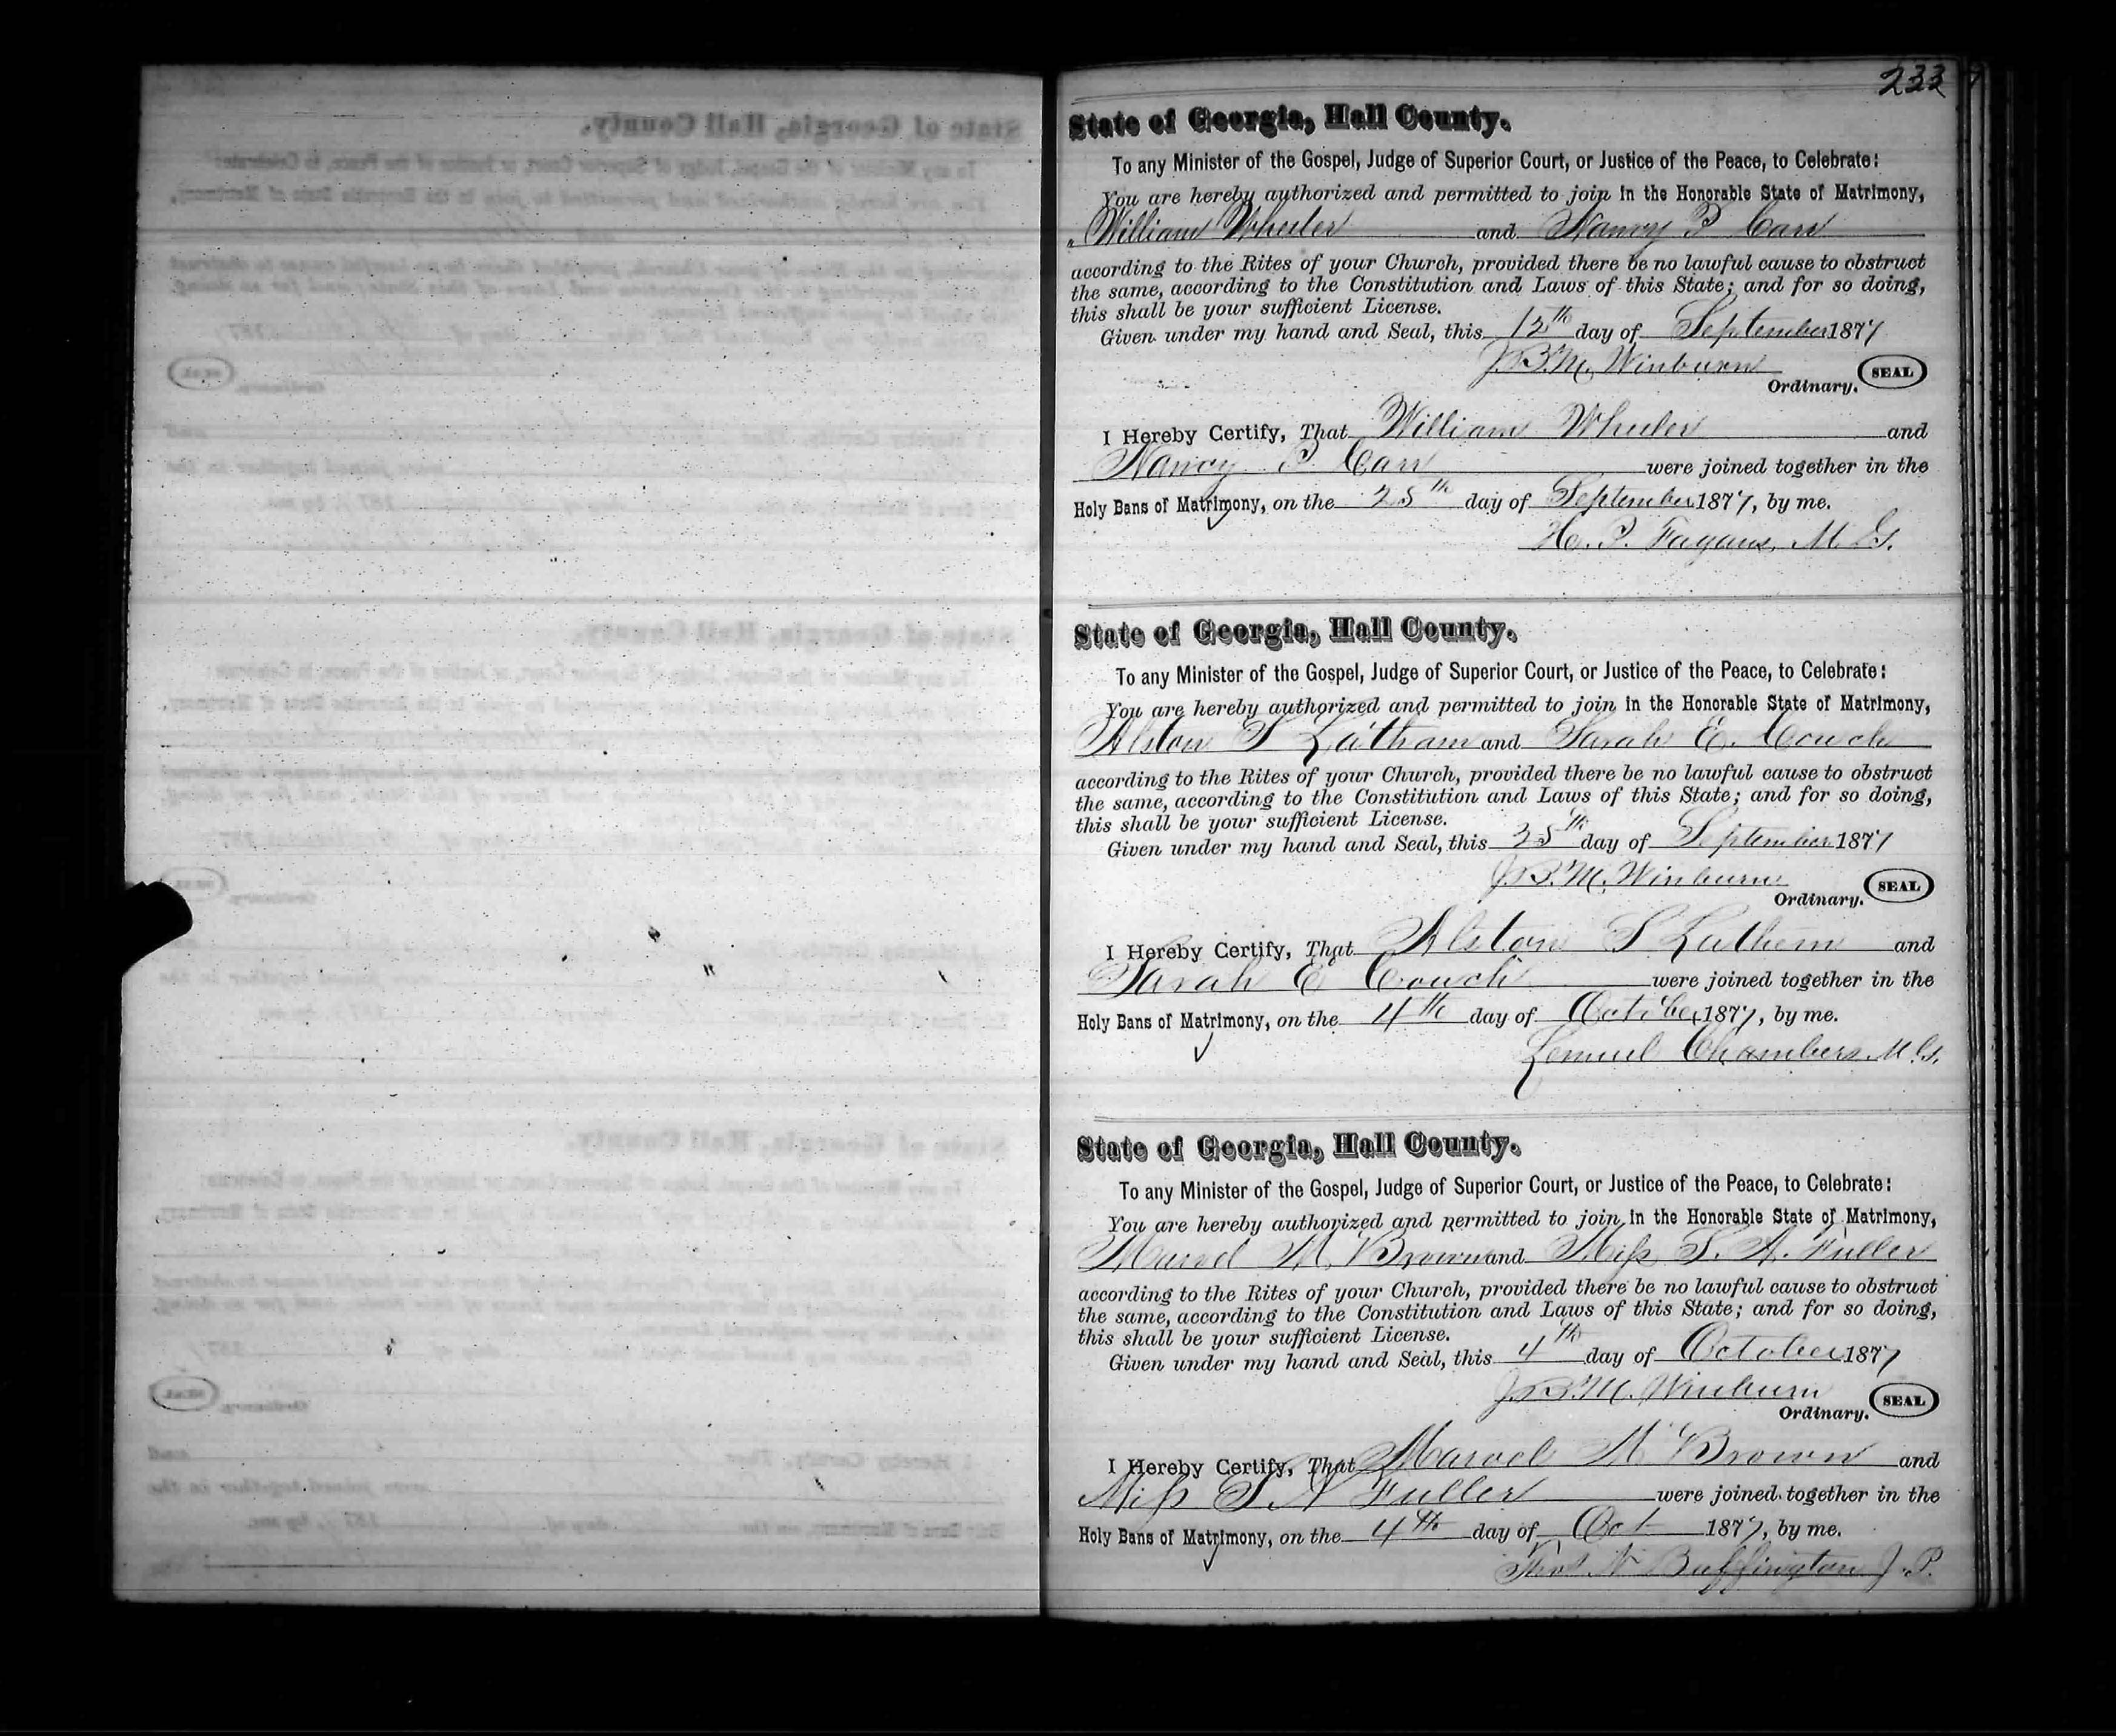 233
State of Georgia, Hall County.
To any Minister of the Gospel, Judge of Superior Court, or Justice of the Peace, to Celebrate:
You are hereby authorized and permitted to join in the Honorable State of Matrimony,
William Wheeler and Nancy P Carr
according to the Rites of your Church, provided there be no lawful cause to obstruct
the same, according to the Constitution and Laws of this State; and for so doing,
this shall be your sufficient License.
Given under my hand and Seal, this 12th day of September 1877
J.B.M. Winburn
Ordinary. SEAL
I Hereby Certify, That William Wheeler and
Nancy P Carr were joined together in the
Holy Bans of Matrimony, on the 25th day of September 1877, by me.
H. P. Fagans, M. G.
State of Georgia, Hall County.
To any Minister of the Gospel, Judge of Superior Court, or Justice of the Peace, to Celebrate:
You are hereby authorized and permitted to join in the Honorable State of Matrimony,
Alston S Latham and Sarah E. Couch
according to the Rites of your Church, provided there be no lawful cause to obstruct
the same, according to the Constitution and Laws of this State; and for so doing,
this shall be your sufficient License.
Given under my hand and Seal, this 25th day of September 1877
J.B.M. Winburn
Ordinary. SEAL
I Hereby Certify, That Alston S Lathem and
Sarah E Couch were joined together in the
Holy Bans of Matrimony, on the 4th day of October 1877, by me.
Lemuel Chambers M.G.
State of Georgia, Hall County.
To any Minister of the Gospel, Judge of Superior Court, or Justice of the Peace, to Celebrate:
You are hereby authorized and permitted to join in the Honorable State of Matrimony,
Marvel M. Brown and Miss S. A. Fuller
according to the Rites of your Church, provided there be no lawful cause to obstruct
the same, according to the Constitution and Laws of this State; and for so doing,
this shall be your sufficient License.
Given under my hand and Seal, this 4th day of October 1877
J.B.M. Winburn
Ordinary. SEAL
I Hereby Certify, That Marvel M Brown and
Miss S A Fuller were joined together in the
Holy Bans of Matrimony, on the 4th day of Oct 1877, by me.
Thos N Buffington J. P.